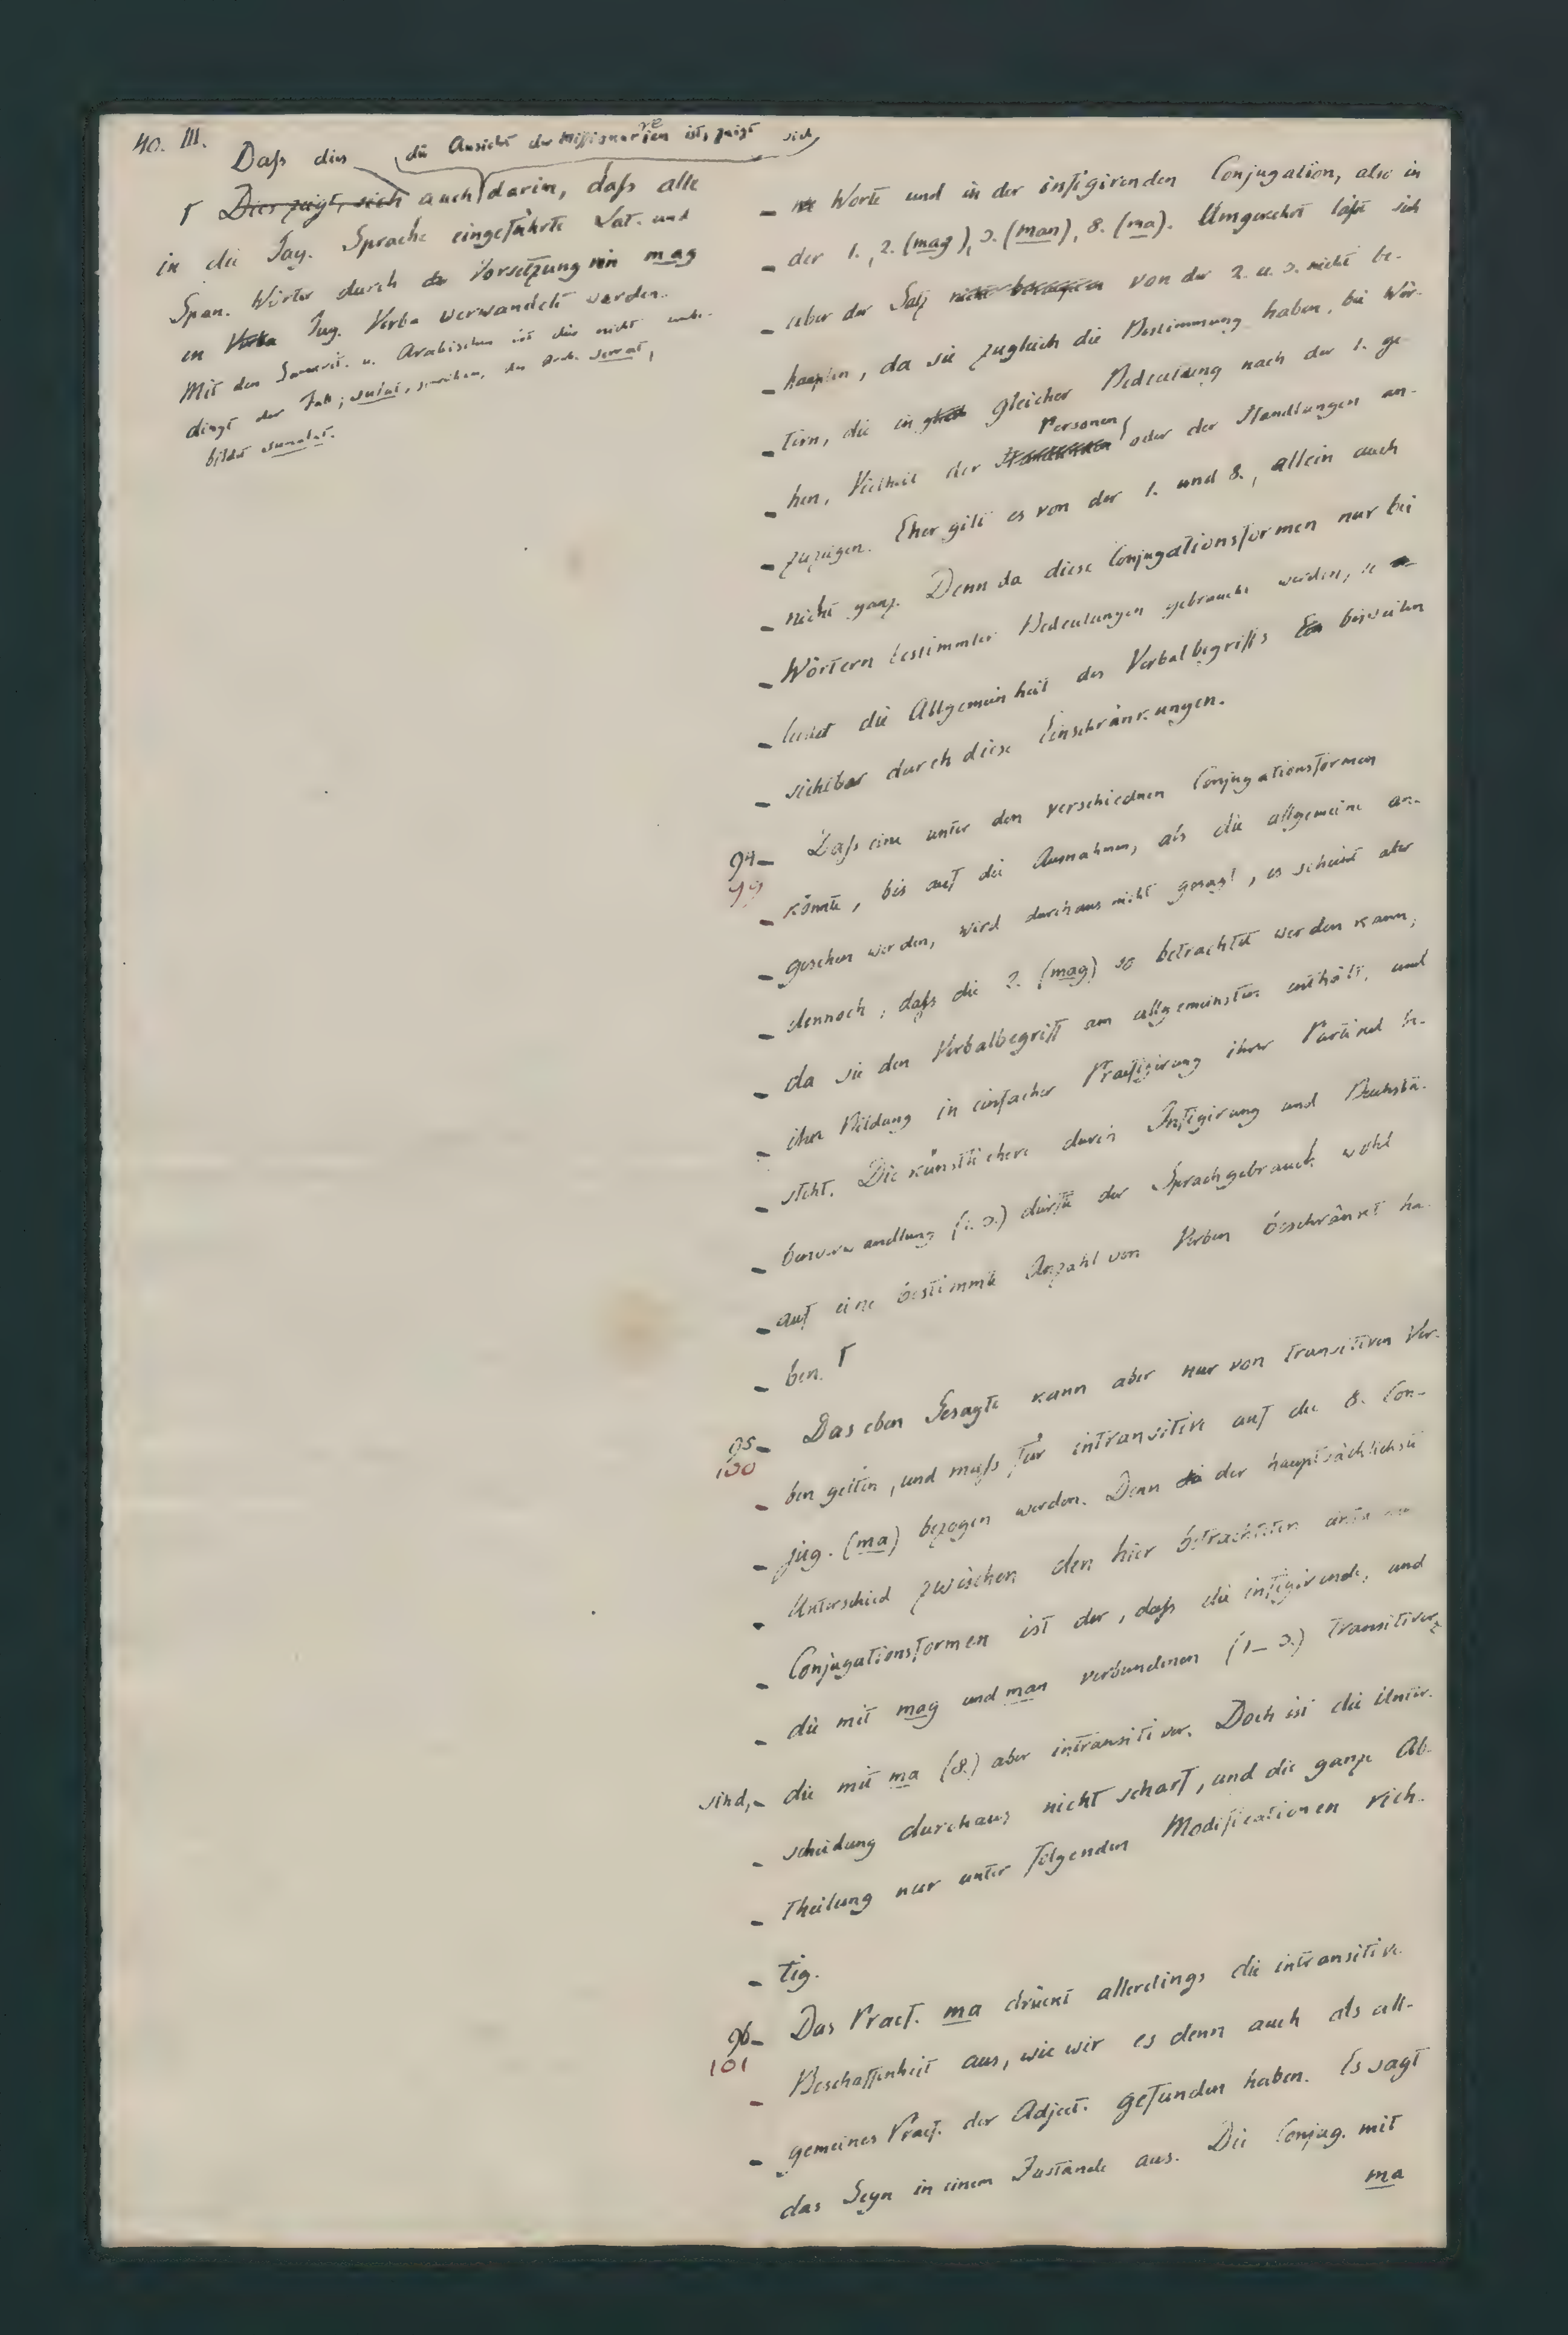 40. III.
Daß dies die Ansicht der Missionare ist, zeigt sich
Dies zeigt, sich auch darin, daß alle
in die Tag. Sprache eingeführte Lat. und
Span. Wörter durch Vorsetzung von mag
in Tag. Verba verwandelt werden.
Mit den Sanscrit. u. Arabischen ist dies nicht unbe-
dingt der Fall; sulat, schreiben, das arab.
bildet sumulat.
Worte und in der infigirenden Conjugation, also in
der 1., 2. (mag), 3. (man), 8. (ma). Umgekehrt läßt sich
aber der Satz von der 2. u. 3. nicht be-
haupten, da sie zugleich die Bestimmung haben, bei Wör-
tern, die in gleicher Bedeutung nach der 1. ge-
hen, Vielheit der Personen oder der Handlungen an-
zuzeigen. Eher gilt es von der 1. und 8., allein auch
nicht ganz. Denn da diese Conjugationsformen nur bei
Wörtern bestimmter Bedeutungen gebraucht werden, so
leidet die Allgemeinheit des Verbalbegriffs bisweilen
sichtbar durch diese Einschränkungen.
94 Daß eine unter den verschiednen Conjugationsformen
99
könnte, bis auf die Ausnahmen, als die allgemeine an-
gesehen werden, wird durchaus nicht gesagt, es scheint aber
dennoch, daß die 2. (mag) so betrachtet werden kann,
da sie den Verbalbegriff am allgemeinsten enthält, und
ihre Bildung in einfacher Praefigirung ihrer Partikel be-
steht. Die künstlichere durch Infigirung und Buchsta-
benverwandlung (1. 3.) dürfte der Sprachgebrauch wohl
auf eine bestimmte Anzahl von Verben beschränkt ha-
ben.
95 Das eben Gesagte kann aber nur von transitiven Ver-
100
ben gelten, und muß für intransitive auf die 8. Con-
jug. (ma) bezogen werden. Denn der hauptsächlichste
Unterschied zwischen den hier betrachteten
Conjugationsformen ist der, daß die infigirende, und
die mit mag und man verbundenen (1–3.) transitiver
sind, die mit ma (8.) aber intransitiver. Doch ist die Unter-
scheidung durchaus nicht scharf, und die ganze Ab-
theilung nur unter folgenden Modificationen rich-
tig.
96 Das Praef. ma drückt allerdings die intransitive
101
Beschaffenheit aus, wie wir es denn auch als all-
gemeines Praef. der Adject. gefunden haben. Es sagt
das Seyn in einem Zustande aus. Die Conjug. mit
ma